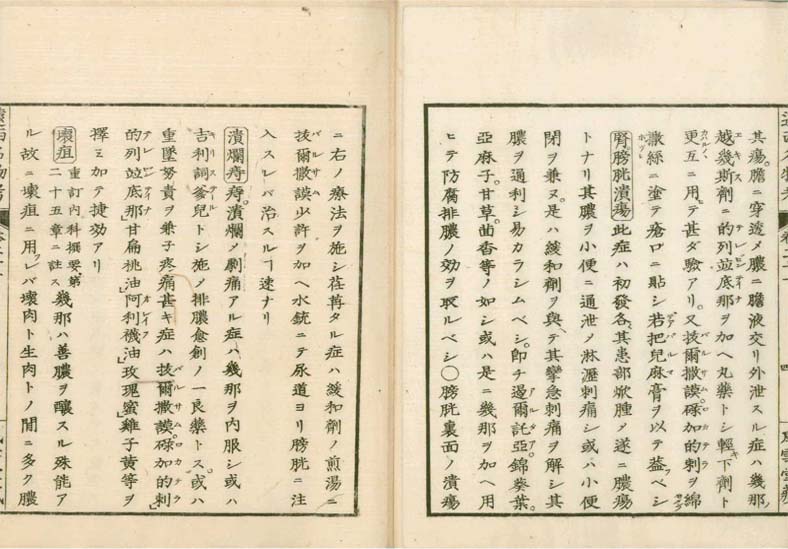 其瘍。膽ニ穿透メ膿ニ膽液交リ外泄スル症ハ幾那ノ
エキス テレビンテイナ
越幾斯劑ニ的列並底那ヲ加ヘ丸藥トシ輕キ下劑ト
バルサム。ロカテラ
更互ニ用ヒテ甚ダ驗アリ。又抜爾撒謨碌加的剌ヲ綿
撒絲ニ塗テ瘡口ニ貼シ若把兒麻膏ヲ以テ葢フベシ
腎膀胱潰瘍 此症ハ初發各其患部焮腫メ遂ニ膿瘍
トナリ其膿ヲ小便ニ通泄メ淋瀝刺痛シ或ハ小便
閉ヲ兼ヌ。是ハ緩和劑ヲ與ヘテ其攣急刺痛ヲ解シ其
アルタア。
膿ヲ通利シ易カラシムベシ。卽チ遏爾託亞。錦葵葉。
亞麻子。甘草。茴香等ノ如シ或ハ是ニ幾那ヲ加ヘ用
ヒテ防腐排膿ノ効ヲ取ルベシ〇膀胱裏面ノ潰瘍
ニ右ノ療法ヲ施シ荏苒タル症ハ緩和劑ノ煎湯ニ
バルサム
抜爾撒謨少許ヲ加ヘ水銃ニテ尿道ヨリ膀胱ニ注
入スレバ治スルヿ速ナリ
潰爛痔 痔。潰爛メ劇痛アル症ハ幾那ヲ內服シ或ハ
キリステール
吉利詞爹兒トシ施メ排膿愈創ノ一良藥トス。或ハ
バルサム。ロカテラ
重墜努責ヲ兼子疼痛甚キ症ハ抜爾撒謨碌加的剌」
テレビンテイナ オレイフ
的列並底那」甘扁桃油」阿利襪油」玫瑰蜜」雞子黃等ヲ
擇ミ加テ捷効アリ
壞疽 重訂內科撰要第二十五章ニ註ス 幾那ハ善膿ヲ釀スル殊能ア
ル故ニ壞疽ニ用フレバ壞肉ト生肉トノ間ニ多ク膿